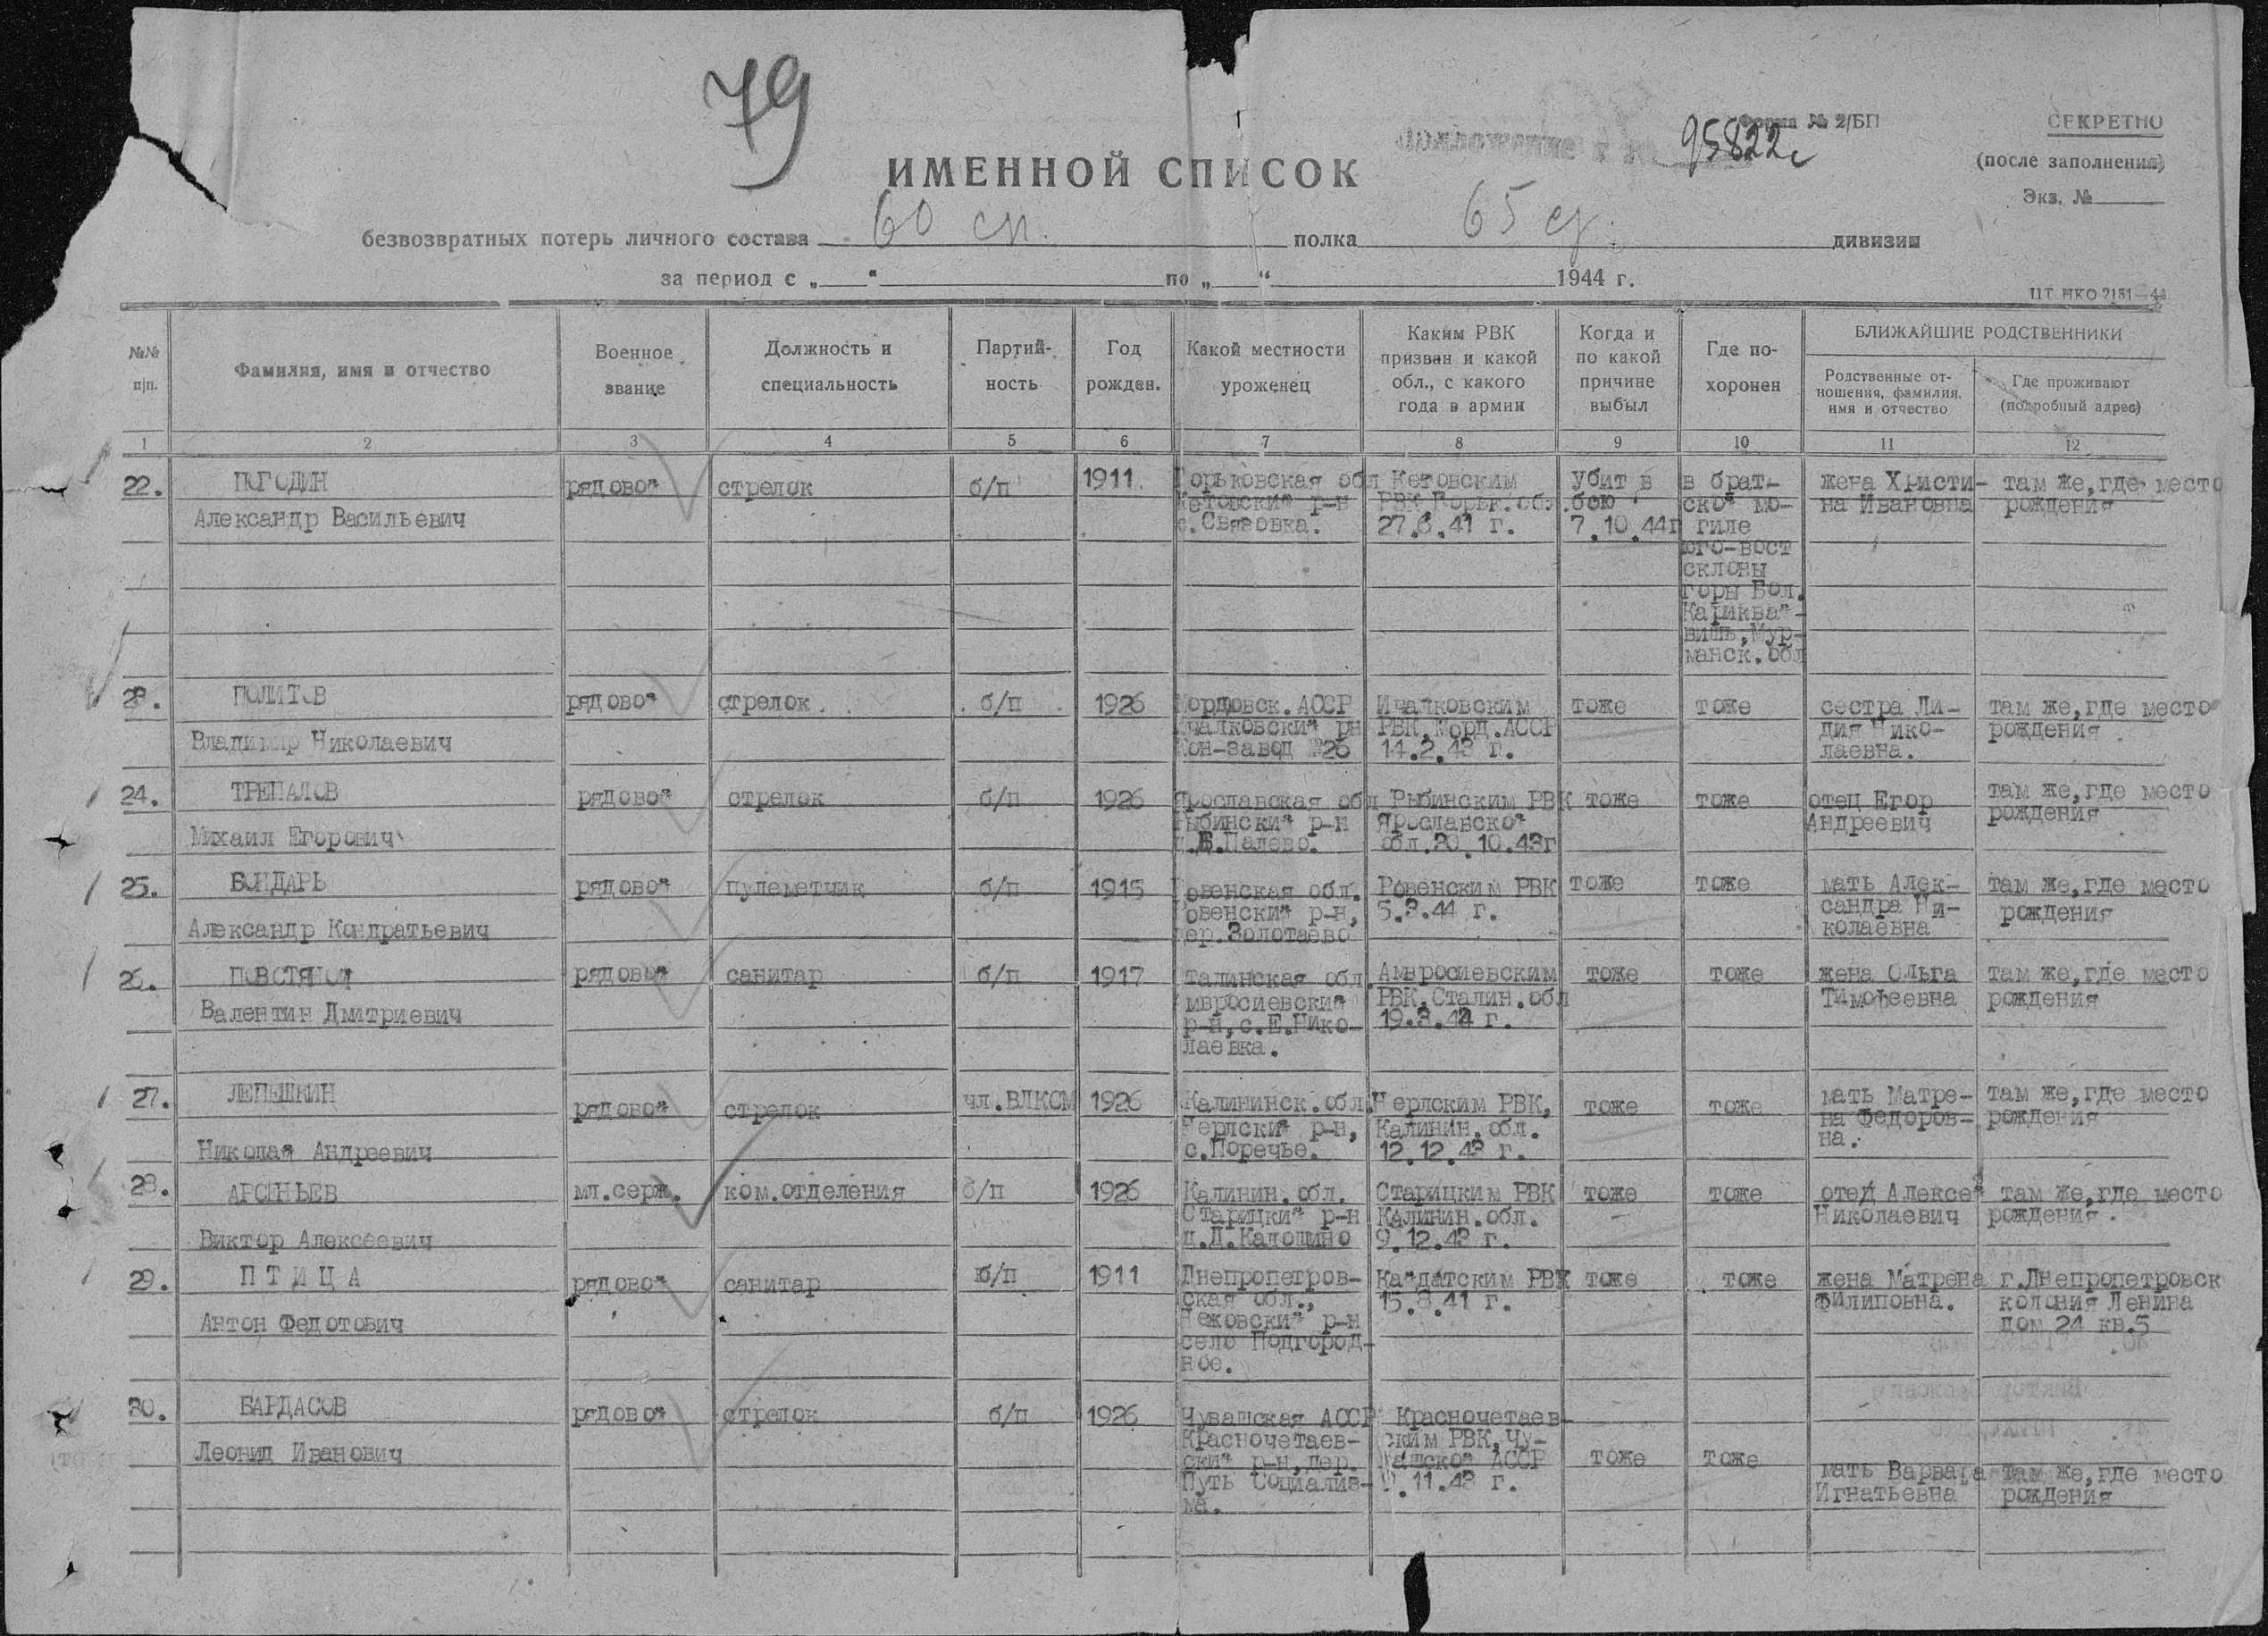 79
Форма № 2/БП
95822с
СЕКРЕТНО
(после заполнения)
Экз. №
ИМЕННОЙ СПИСОК
безвозвратных потерь личного состава 60 сп. полка 65 сд. дивизии
за период с „ “ по „ “ 1944 г.
ЦТ НКО 2181—44
№№ п|п.
Фамилия, имя и отчество
Военное звание
Должность и специальность
Партий-
ность
Год рожден.
Какой местности уроженец
Каким РВК
призван и какой
обл., с какого
года в армии
Когда и
по какой
причине
выбыл
Где по-
хоронен
БЛИЖАЙШИЕ РОДСТВЕННИКИ
Родственные от-
ношения, фамилия,
имя и отчество
Где проживают
(подробный адрес)
1 2 3 4 5 6 7 8 9 10 11 12
22.
ПОГОДИН
Александр Васильевич
рядовой
стрелок
б/п
1911.
Горьковская обл
Кетовский р-н
с.Связовка.
Кетовским
РВК Горьк.обл.
27.8.41 г.
Убит в
бою
7.10.44г
в брат-
ской мо-
гиле
юго-вост
склоны
горы Бол.
Кариквай-
вишь, Мур-
манск.обл
жена Христи-
на Ивановна
там же,где место
рождения
23.
ПОЛИТОВ
Владимир Николаевич
рядовой
стрелок
б/п
1926
Мордовск.АССР
Ичалковский рн
Кон-завод №26
Ичалковским
РВК,Морд.АССР
14.2.43 г.
тоже
тоже
сестра Ли-
дия Нико-
лаевна.
там же,где место
рождения
24.
ТРЕПАЛОВ
Михаил Егорович
рядовой
стрелок
б/п
1926
Ярославская обл
Рыбинский р-н
д.Б.Палево.
Рыбинским РВК
Ярославской
обл.30.10.43г
тоже
тоже
отец Егор
Андреевич
там же,где место
рождения
25.
БОНДАРЬ
Александр Кондратьевич
рядовой
пулеметчик
б/п
1915
Ровенская обл.
Ровенский р-н,
дер.Золотаево
Ровенским РВК
5.3.44 г.
тоже
тоже
мать Алек-
сандра Ни-
колаевна
там же,где место
рождения
26.
ПОВСТЯНОЙ
Валентин Дмитриевич
рядовой
санитар
б/п
1917
Сталинская обл.
Амвросиевский
р-н,с.Е.Нико-
лаевка.
Амвросиевским
РВК,Сталин.обл
19.3.43 г.
тоже
тоже
жена Ольга
Тимофеевна
там же,где место
рождения
27.
ЛЕПЕШКИН
Николай Андреевич
рядовой
стрелок
чл.ВЛКСМ
1926
Калининск.обл.
Нерлский р-н,
с.Поречье.
Нерлским РВК,
Калинин.обл.
12.12.43 г.
тоже
тоже
мать Матре-
на Федоров-
на.
там же,где место
рождения
28.
АРСЕНЬЕВ
Виктор Алексеевич
мл.серж.
ком.отделения
б/п
1926
Калинин.обл.
Старицкий р-н
д.Д.Калошино
Старицким РВК
Калинин.обл.
9.12.43 г.
тоже
тоже
отец Алексей
Николаевич
там же,где место
рождения.
29.
ПТИЦА
Антон Федотович
рядовой
санитар
б/п
1911
Днепропетров-
ская обл.,
р-н
село Подгород-
ное.
Кайдатским РВК
15.8.41 г.
тоже
тоже
жена Матрена
Филиповна.
г.Днепропетровск
колония Ленина
дом 24 кв.5
30.
БАРДАСОВ
Леонид Иванович
рядовой
стрелок
б/п
1926
Чувашская АССР
Красночетаев-
ский р-н,дер.
Путь Социализ-
ма.
Красночетаев-
ским РВК,Чу-
вашской АССР
11.43 г.
тоже
тоже
мать Варвара
Игнатьевна
там же,где место
рождения